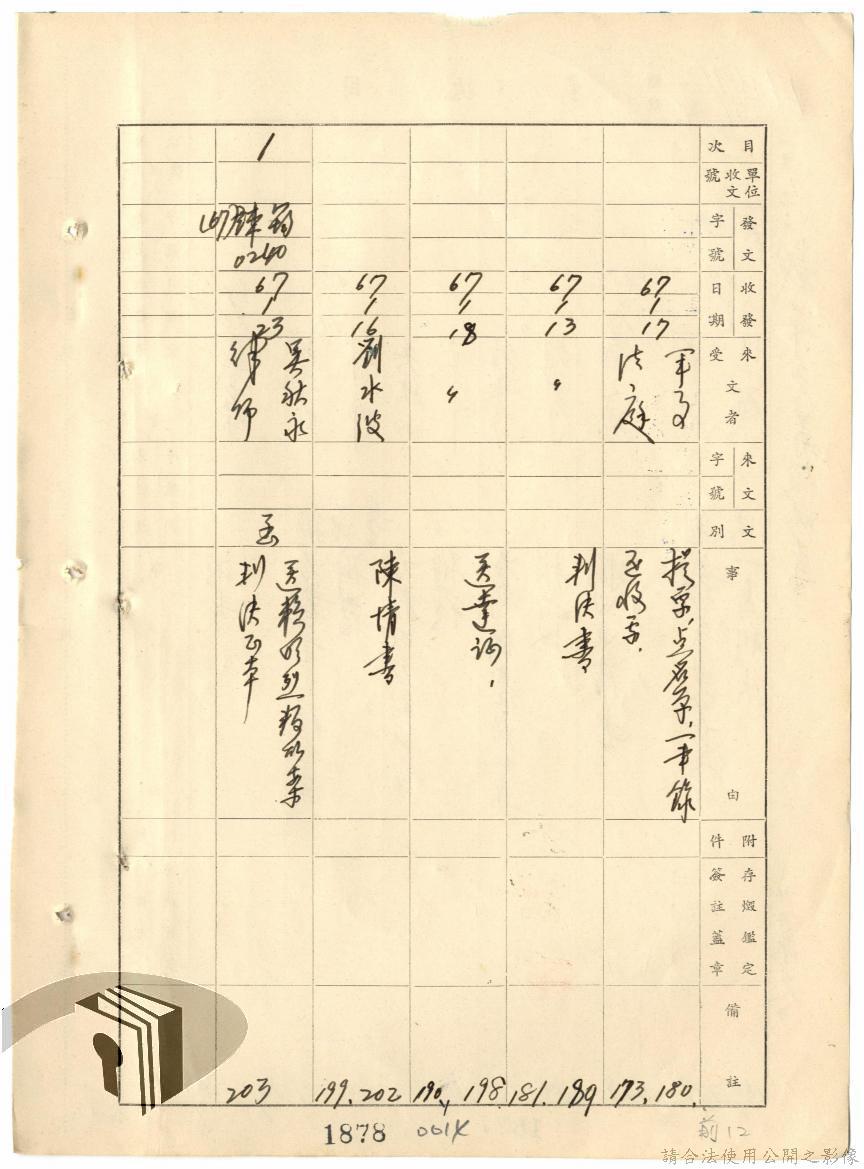 目次
單位收文號
發文字號
收發日期
來受文者
來文字號
文別
事由
附件
存燬鑑定簽註蓋章
備註
67
1
17
軍事
法庭
提票、点名单、筆錄
還收票、
173, 180
67
1
13
〃
判決書
181, 189
67
1
18
〃
送達証、
190, 198
67
1
16
劉水波
陳情書
199, 202
1
0240
67
1
23
吳秋永
律師
函
送賴明烈叛亂案
判決正本
203
1878
001X
前12
請合法使用公開之影像